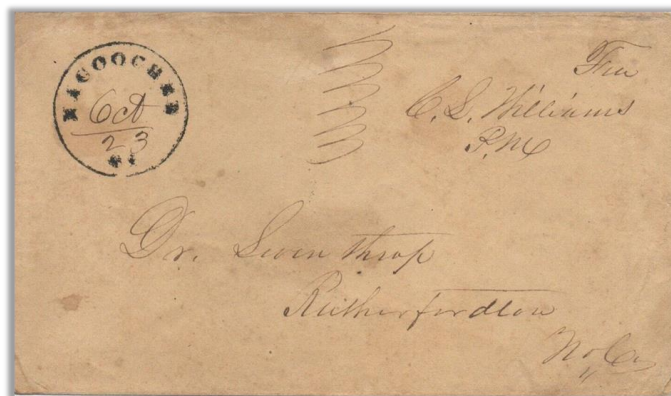 NACOOCHEE
Oct
23
Free
C. L. Williams
P.M
Dr.
Rutherfordton
No. Ca